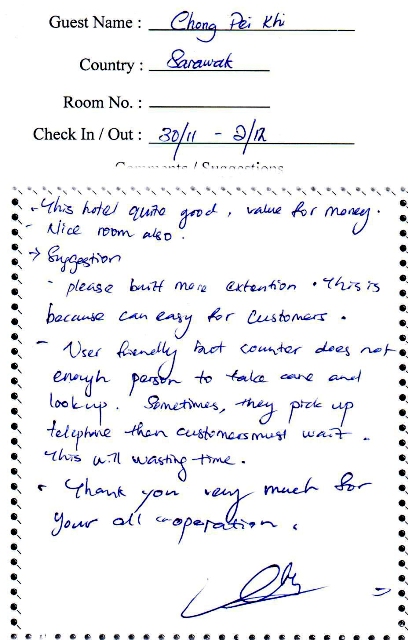 Guest Name : Chong Pei Khi
Country : Sarawak
Room No. :
Check In / Out : 30/11 - 2/12
Comments / Suggestions
- This hotel quite good, value for money.
- Nice room also.
→ Suggestion
- please built more extention. This is
because can easy for customers.
- User friendly but counter does not
enough person to take care and
look up. Sometimes, they pick up
telephone then customers must wait.
This will wasting time.
• Thank you very much for
your all cooperation.